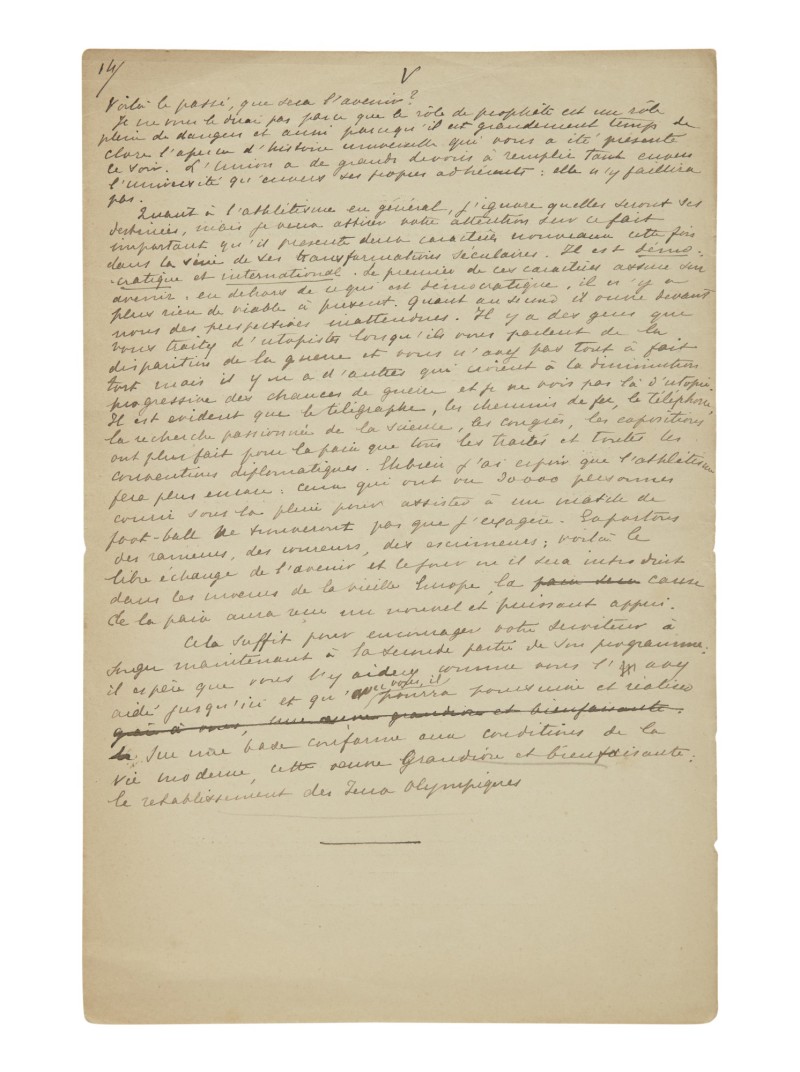 14/
V
Voilà le passé, que sera l'avenir?
Je ne vous le dirai pas parce que le rôle de prophète est un rôle
plein de dangers et aussi parcequ'il est grandement temps de
clore l'aperçu d'histoire universelle qui vous a été présenté
ce soir. L'Union a de grands devoirs à remplir tant envers
l'université qu'envers ses propres adhérents: elle n'y faillira
pas.
Quant à l'athlétisme en général, j'ignore quelles seront ses
destinées, mais je veux attirer votre attention sur ce fait
important qu'il présente deux caractères nouveaux cette fois
dans la série de ses transformations séculaires. Il est démo-
cratique et international. Le premier de ces caractères assure son
avenir: en dehors de ce qui est démocratique, il n'y a
plus rien de viable à présent. Quant au second il ouvre devant
nous des perspectives inattendues. Il y a des gens que
vous traitez d'utopistes lorsqu'ils vous parlent de la
disparition de la guerre et vous n'avez pas tout à fait
tort mais il y en a d'autres qui croient à la diminution
progressive des chances de guerre et je ne vois pas là d'utopie.
Il est évident que le télégraphe, les chemins de fer, le téléphone,
la recherche passionnée de la science, les congrès, les expositions
ont plus fait pour la paix que tous les traités et toutes les
conventions diplomatiques. Ehbien j'ai espoir que l'athlétisme
fera plus encore: ceux qui ont vu 30000 personnes
courir sous la pluie pour assister à un match de
foot-ball ne trouveront pas que j'exagère. Exportons
des rameurs, des coureurs, des escrimeurs; voilà le
libre échange de l'avenir et le jour où il sera introduit
dans les moeurs de la vieille Europe, la paix sera cause
de la paix aura reçu un nouvel et puissant appui.
Cela suffit pour encourager votre serviteur à
songer maintenant à la seconde partie de son programme;
il espère que vous l'y aiderez comme vous l'y avez
aidé jusqu'ici et qu'avec vous, il pourra poursuivre et réaliser
grâce à vous, une oeuvre grandiose et bienfaisante.
sur une base conforme aux conditions de la
vie moderne, cette oeuvre Grandiose et bienfaisante:
le rétablissement des Jeux Olympiques